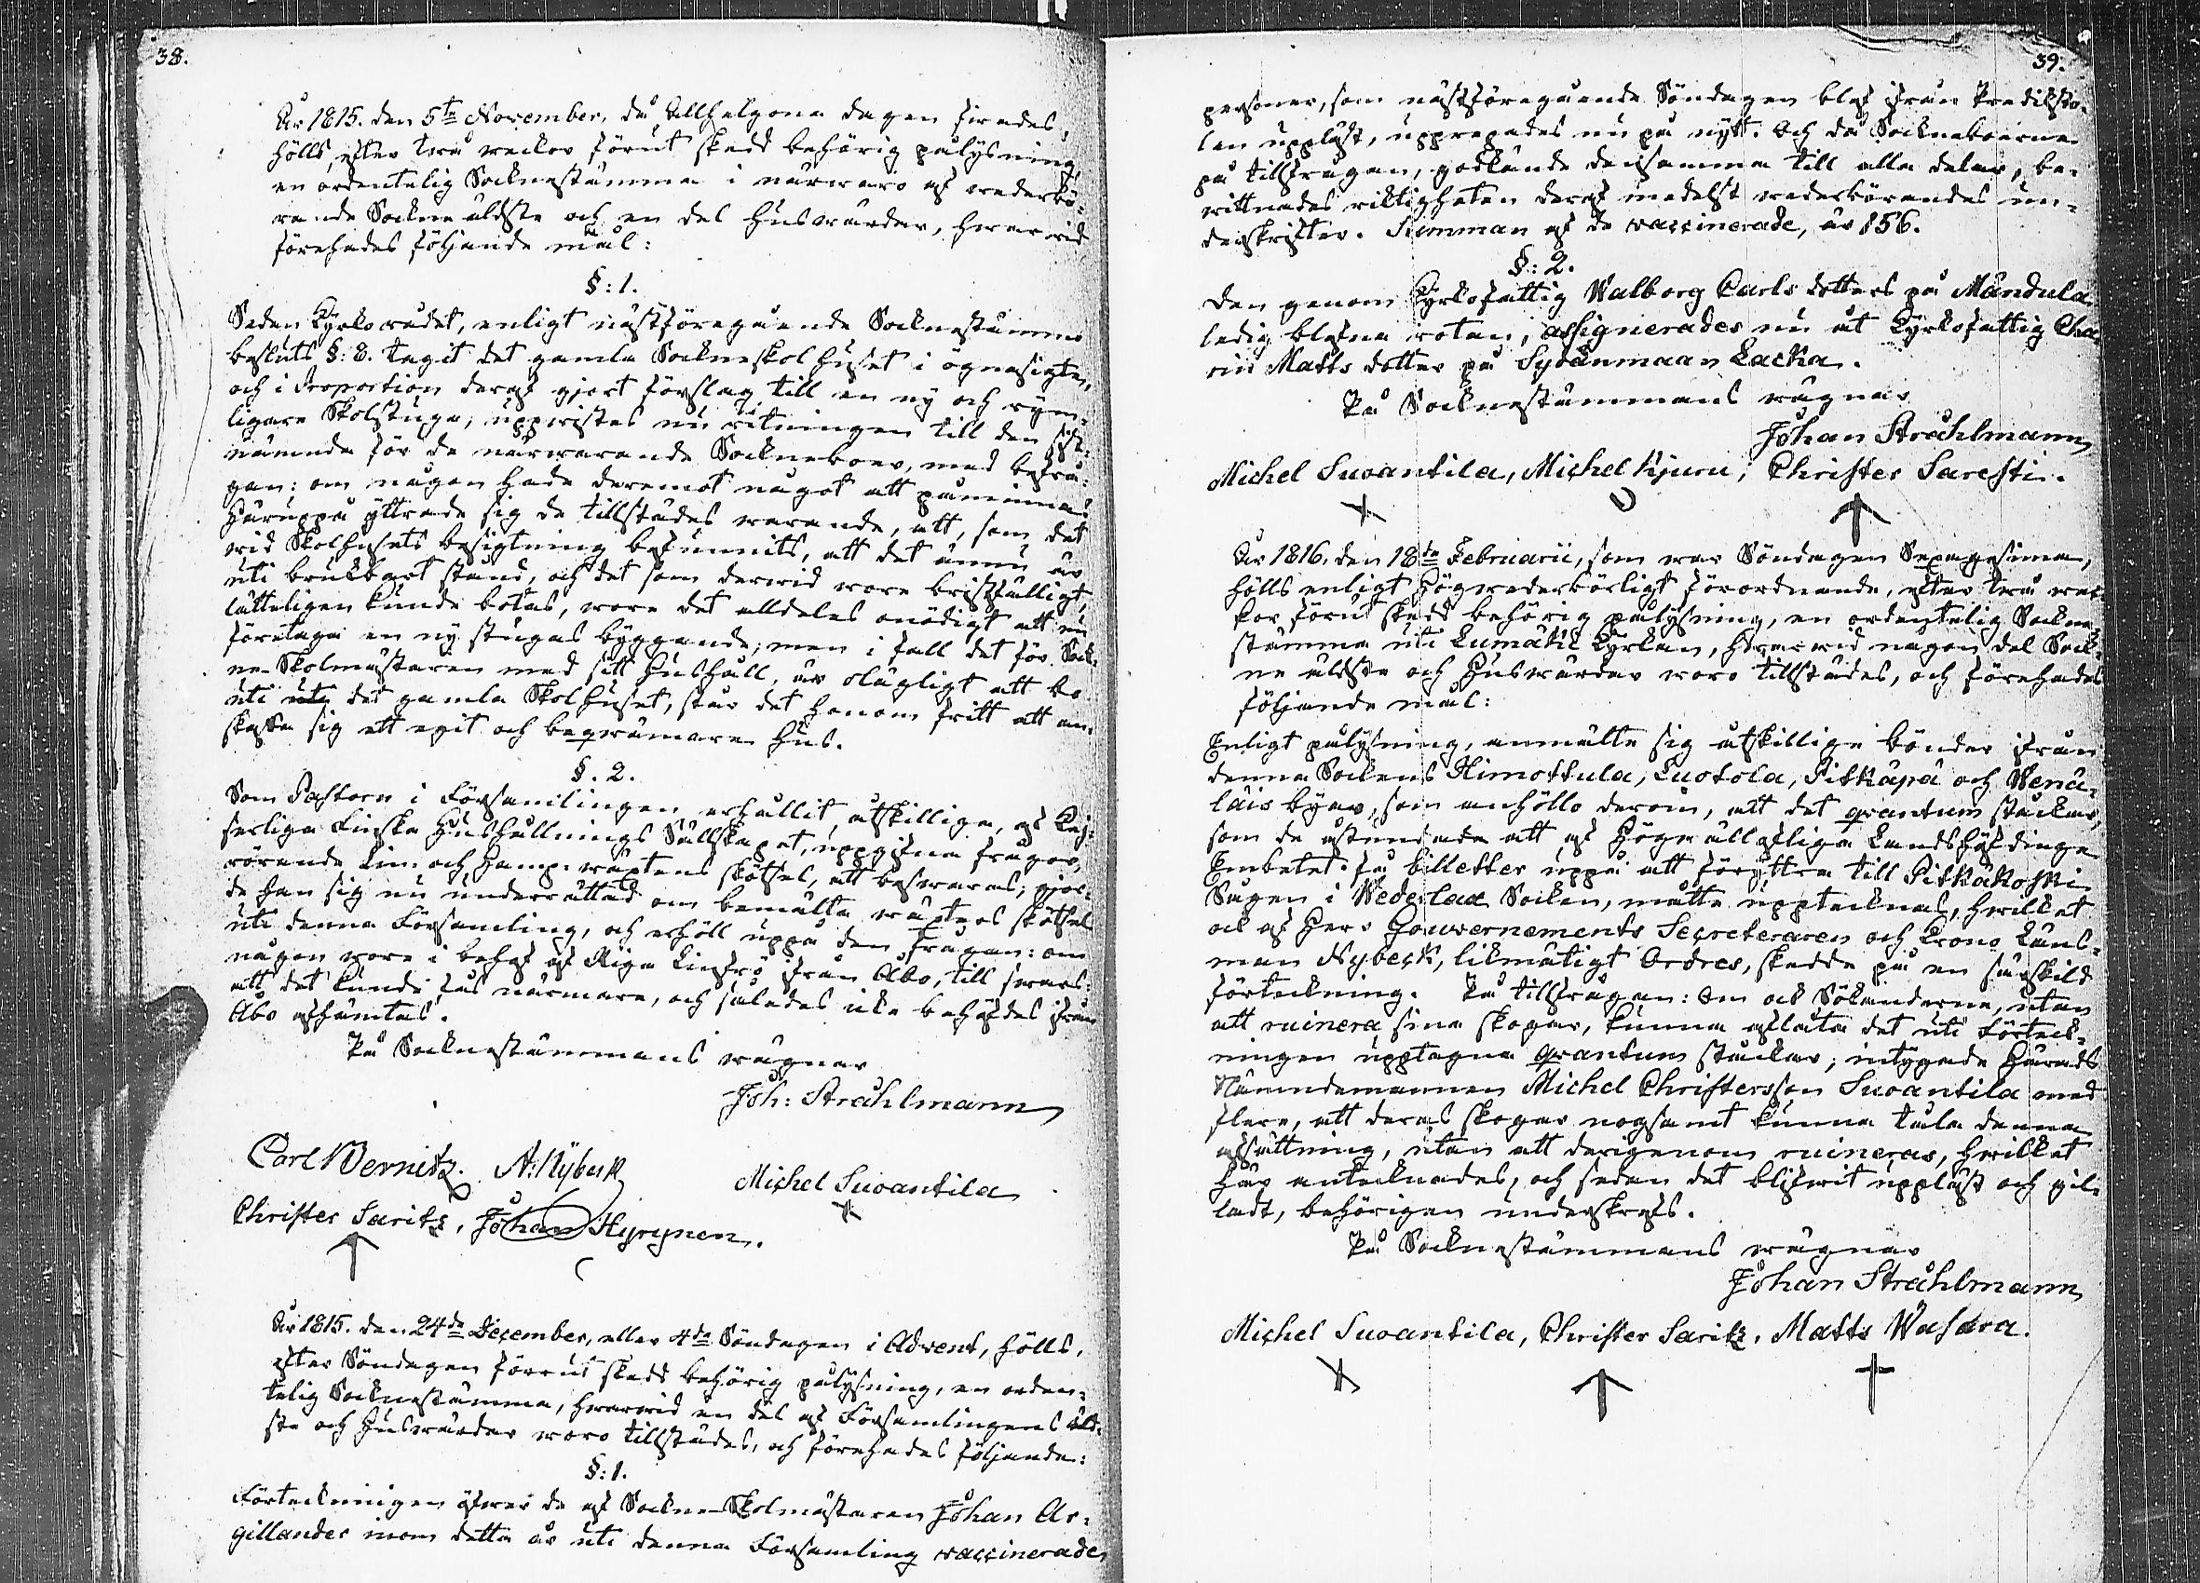 38.
År 1815. den 5te November, då Allhelgona dagen firades,
hölls, efter två weckor förut skedd behörig pålysning,
en ordentelig Sockne stämma i närwaro af wederbö-
rande Sockne äldste och en del huswärdar, hwarwid
förehades följande mål:
§: 1.
Sedan Kyrko rådet, enligt nästföregående Socknestämmo
besluts §: 8. tagit det gamla Sockneskolhuset i ögnasigte,
och i Proportion deraf gjort förslag till en ny och rym-
ligare Skolstuga, uppwistes nu ritningen till den sist-
nämnda för de närwarande Sockneboer, med befrå-
gan: om någon hade deremot något att påminna.
Häruppå yttrade sig de tillstädes warande, att, som det
wid Skolhusets besigtning befunnits, att det ännu är
uti brukbart stånd, och det som derwid wore bristfälligt,
lätteligen kunde botas, wore det alldeles onödigt att nu
företaga en ny stugas byggande; men i fall det för Sock-
ne-Skolmästaren med sitt hushåll, är olägligt att bo
uti det gamla Skolhuset, står det honom fritt att an-
skaffa sig ett eget och beqwämare hus.
§. 2.
Som Pastorn i Församlingen erhållit åtskillige, af Kej-
serliga Finska Hushållnings Sällskapet, uppgifna frågor,
rörande Lin- och Hamp-wäxtens skötsel, att beswaras; gjor-
de han sig nu underrättad om bemälte wäxters skötsel
uti denna Församling, och erhöll uppå den frågan: om
någon wore i behof af Riga Linfrö från Åbo, till swars:
att det kunde fås närmare, och således icke behöfdes ifrån
Åbo afhämtas.
På Sockne stämmans wägnar
Joh: Stråhlmann
Carl Wernitz. A: Nybeck
Michel Suoantila
Christer Saritz, Johan Hyrynen.
År 1815. den 24de December, eller 4de Söndagen i Advent, hölls,
efter Söndagen förrut skedd behörig pålysning, en orden-
telig Socknestämma, hwarwid en del af Församlingens äld-
ste och huswärdar woro tillstädes, och förehades följande:
§: 1.
Förteckningen öfwer de af Sockne-Skolmästaren Johan Ar-
gillander inom detta år uti denna Församling vaccinerade
39.
personer, som nästföregående Söndagen blef ifrån Prediksto-
len uppläst, upprepades nu på nytt. Och då Sockneboerne
på tillfrågan, godkände densamma till alla delar, be-
wittnades riktigheten deraf medelst wederbörandes un-
derskrifter. Summan af de vaccinerade, är 156.
§: 2.
Den genom Kyrkofattig Walborg Carls dotters på Mandula
ledig blefne rotan, assignerades nu åt Kyrkofattig Cha-
rin Matts dotter på Sydänmaan Lacka.
På Sockne stämmans wägnar
Johan Stråhlmann
Michel Suoantila, Michel Kjuru, Christer Saresti.
År 1816. den 18de Februarii, som war Söndagen Sexagesima,
hölls enligt Högwederbörligt förordnande, efter två wec-
kor förut skedd behörig pålysning, en ordentelig Sockne-
stämma uti Lumäki Kyrkan, hwarwid någon del Sock-
ne äldste och Huswärdar woro tillstädes, och förehades
följande mål:
Enligt pålysning, anmälte sig åtskillige bönder ifrån
denna Sockens Himottula, Luotola, Pitkäpä och Wenä-
läis byar, som anhöllo derom, att det quantum stockar,
som de åstundade att af Högwällofliga Landshöfdinge
Embetet få billetter uppå att föryttra till Pitkäkoski
Sågen i Wederlax Socken, måtte upptecknas, hwilket
ock af Herr Gouvernements Secreteraren och Krono Läns-
man Nybeck, likmätigt Ordres, skedde på en särskild
förteckning. På tillfrågan: Om ock Sökanderne, utan
att ruinera sina skogar, kunna aflåta det uti Förteck-
ningen upptagne quantum stockar; intygade Härads
Nämndemannen Michel Christersson Suoantila med
flere, att deras skogar nogsamt kunna tåla denna
afsättning, utan att derigenom ruineras, hwilket
här antecknades, och sedan det blifwit uppläst och gil-
ladt, behörigen underskrefs.
På Sockne stämmans wägnar
Johan Stråhlmann
Michel Suoantila, Christer Saritz, Matts Wasara.